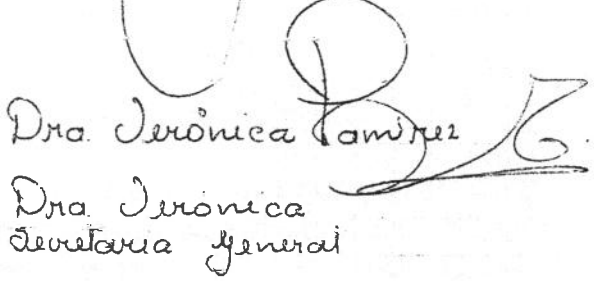 Dra. Verónica Ramírez
Dra. Verónica
Secretaria General